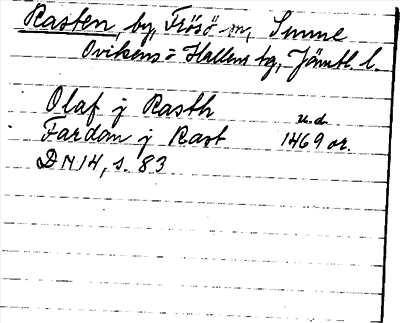 Rasten, by, Frösö sn, Sunne
Ovikens o Hallens tg, Jämtl. l.
Olaf j Rasth u.d.
Fardan j Rast 1469 or.
DN 14, s. 83